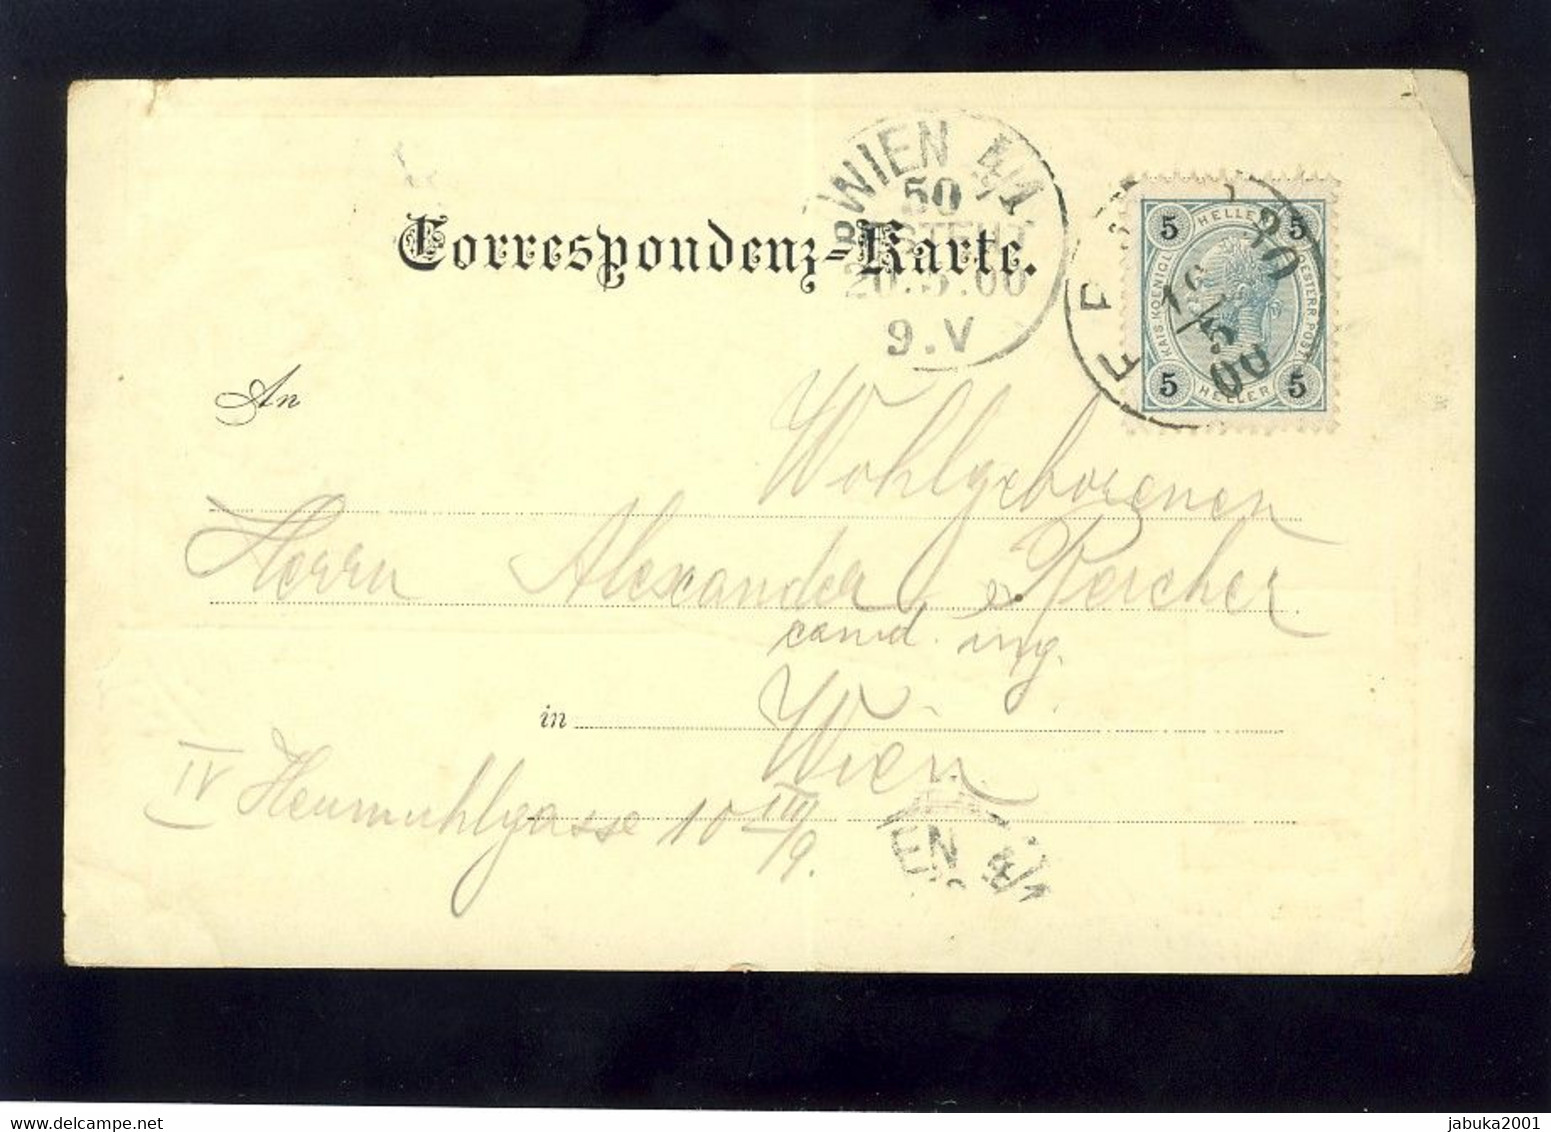 WIEN 4/1
50
BESTELLT
20.5.00
9.V
Correspondenz-Karte.
5 HELLER 5
KAIS. KOENIGL. OESTERR. POST.
5 HELLER 5
00
An
Wohlgeborenen
Herrn Alexander Reicher
cand. ing.
in
Wien
IV Heumühlgasse 10 III/9.
EN 4/1
jabuka2001